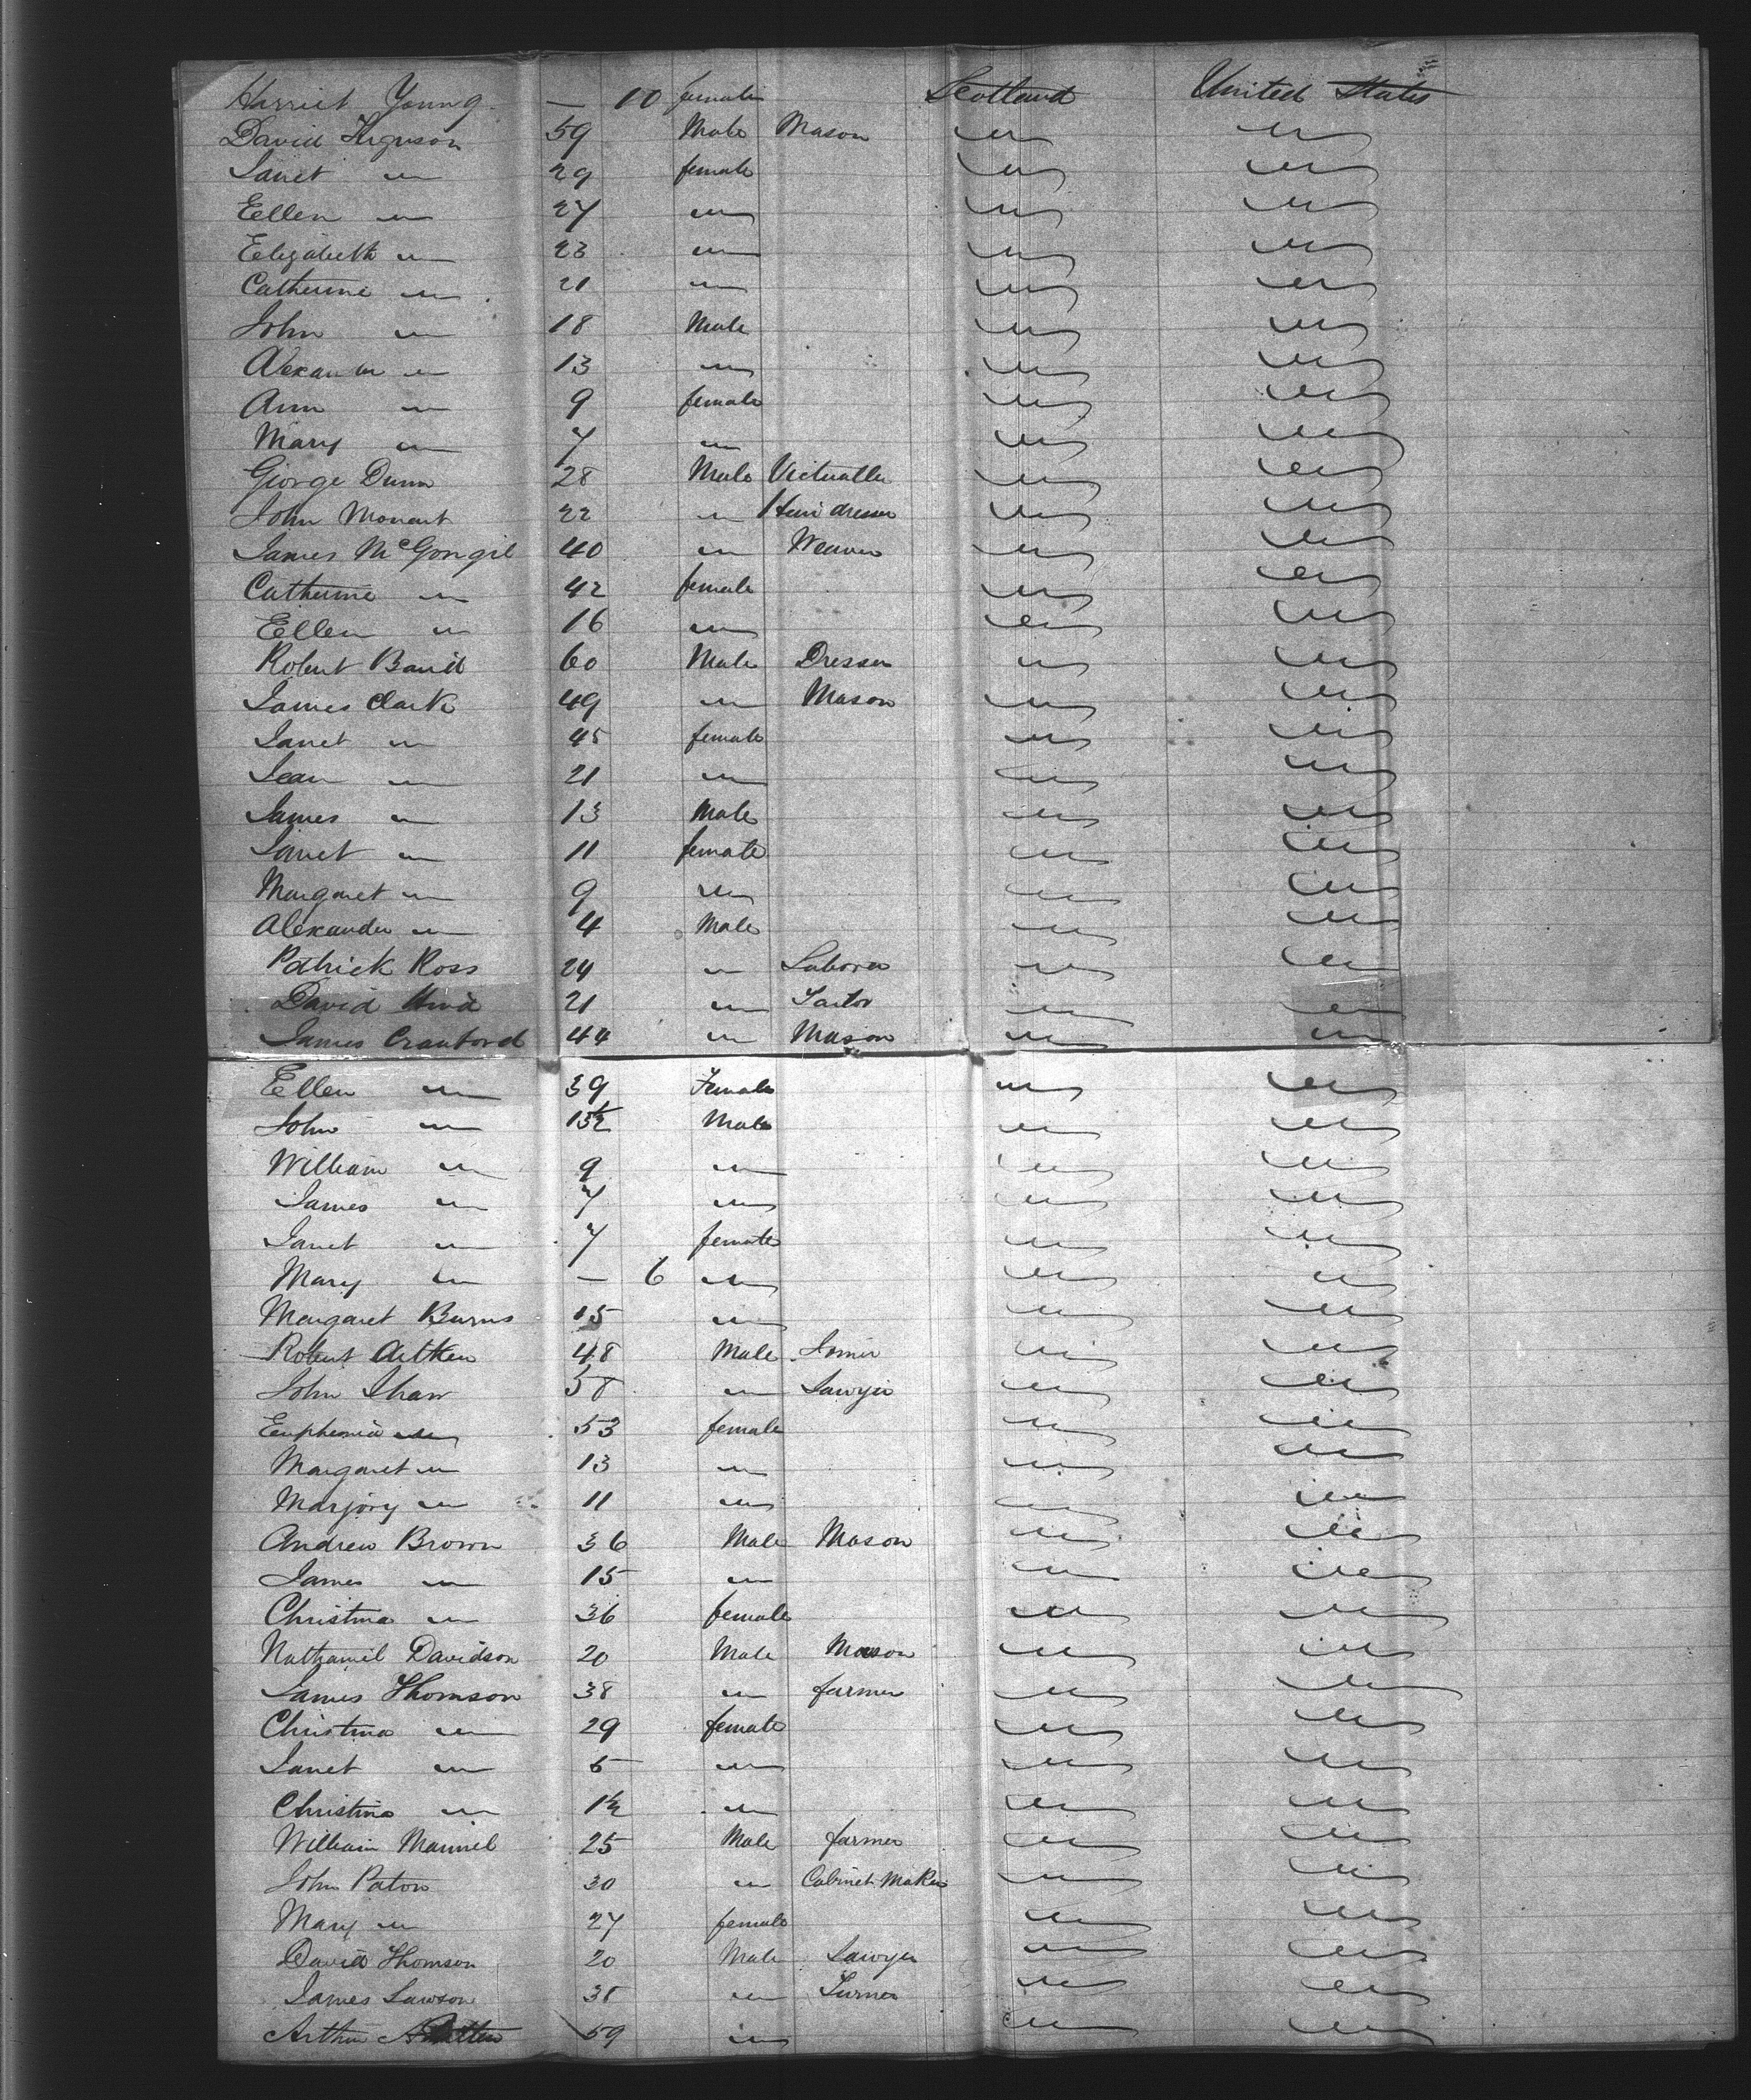 Harriet Young — 10 female Scotland United States
David Ferguson 59 Male Mason " "
Janet " 29 female " "
Eellen " 27 " " "
Elizabeth " 23 " " "
Catherine " 21 " " "
John " 18 Male " "
Alexander " 13 " " "
Ann " 9 female " "
Mary " 7 " " "
George Dunn 28 Male Victualler " "
John 22 " " "
James McGongil 40 " Weaver " "
Catherine " 42 female " "
Eellen " 16 " " "
Robert Baird 60 Male Dresser " "
James Clark 49 " Mason " "
Janet " 45 female " "
Jean " 21 " " "
James " 13 Male " "
Janet " 11 female " "
Margaret " 9 " " "
Alexander " 4 Male " "
Patrick Ross 24 " Laborer " "
David 21 " Tailor " "
James Crauford 44 " Mason " "
Eellen " 39 Female " "
John " Male " "
William " 9 " " "
James " 7 " " "
Janet " 7 female " "
Mary " — 6 " " "
Margaret Burns 15 " " "
Robert Aitken 48 Male " "
John Shaw 58 " Sawyer " "
Euphemia " 53 female " "
Margaret " 13 " " "
Marjory " 11 " " "
Andrew Brown 36 Male Mason " "
James " 15 " " "
Christina " 36 female " "
Nathaniel Davidson 20 Male Mason " "
James Thomson 38 " farmer " "
Christina " 29 female " "
Janet " 5 " " "
Christina " 1½ " " "
William 25 Male farmer " "
John Paton 30 " Cabinet Maker " "
Mary " 27 female " "
David Thomson 20 Male Sawyer " "
James Lawson " Turner " "
Arthur 59 " " "